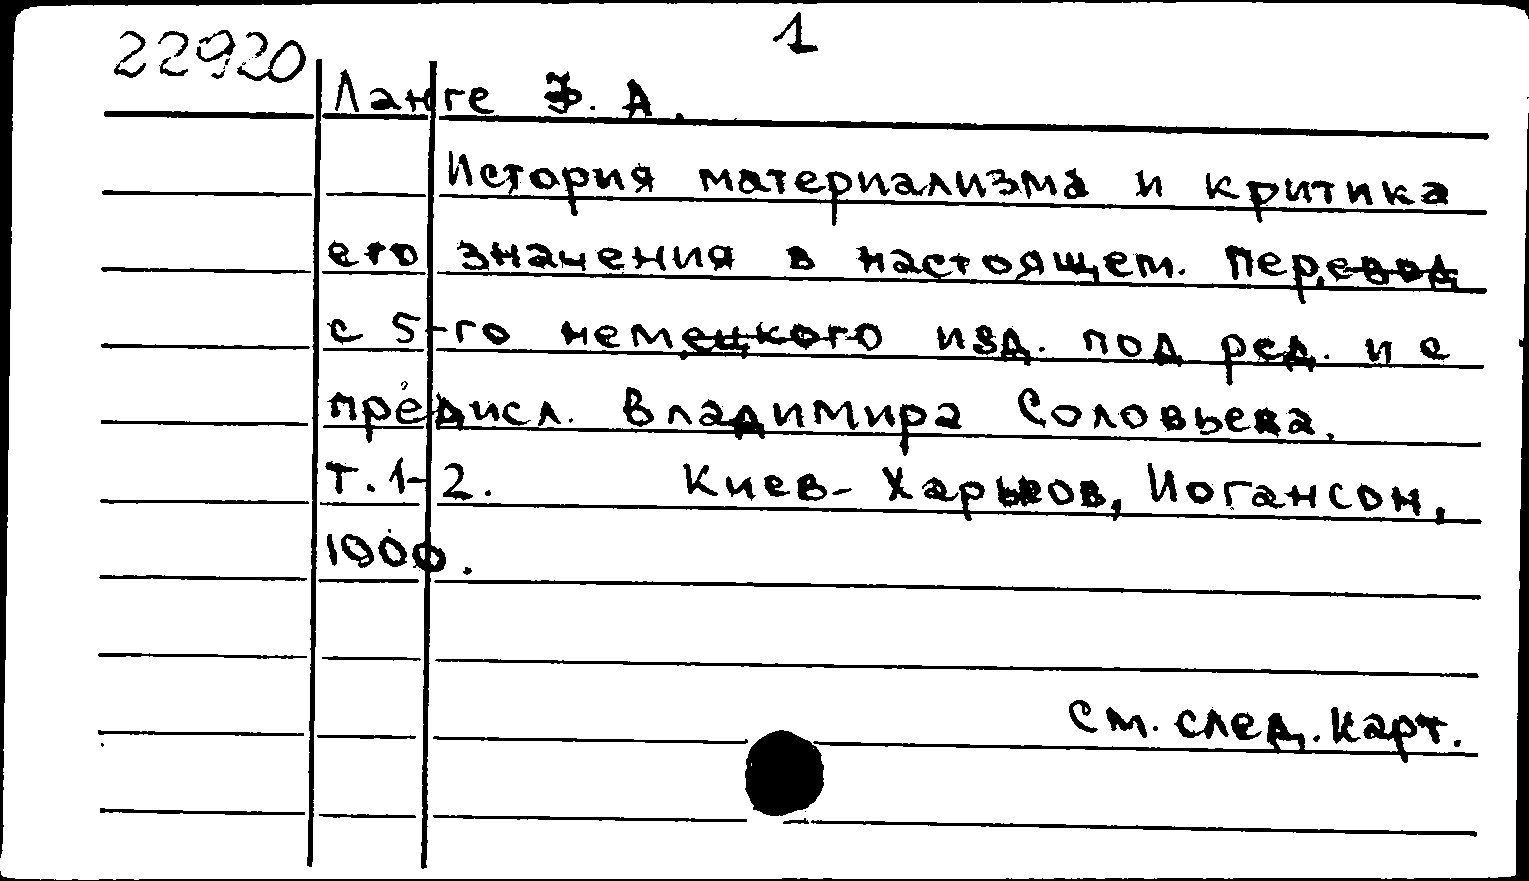 1
22920
Ланге Ф. А.
История материализма и критика
его значения в настоящем. Перевод
с 5-го немецкого изд. под ред. и с
предисл. Владимира Соловьева.
Т. 1-2. Киев-Харьков, Иогансон,
1900.
См. след. карт.